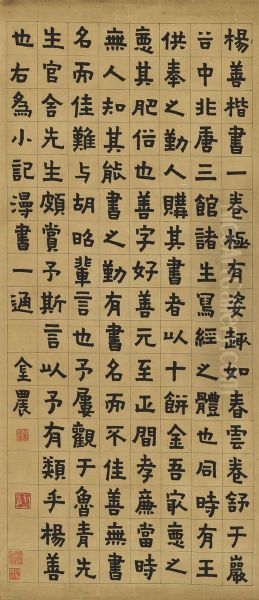 楊善楷書一卷極有姿趣如春雲卷舒于巖
谷中非唐三館諸生寫經之體也同時有王
供奉之勤人購其書者以十餅金吾㝡惡之
惡其肥俗也善字好善元至正間孝廉當時
無人知其能書之勤有書名而不佳善無書
名而佳難与胡昭輩言也予屢觀于魯青先
生官舍先生頗賞予斯言以予有類乎楊善
也右為小記漫書一通 金農
alamy